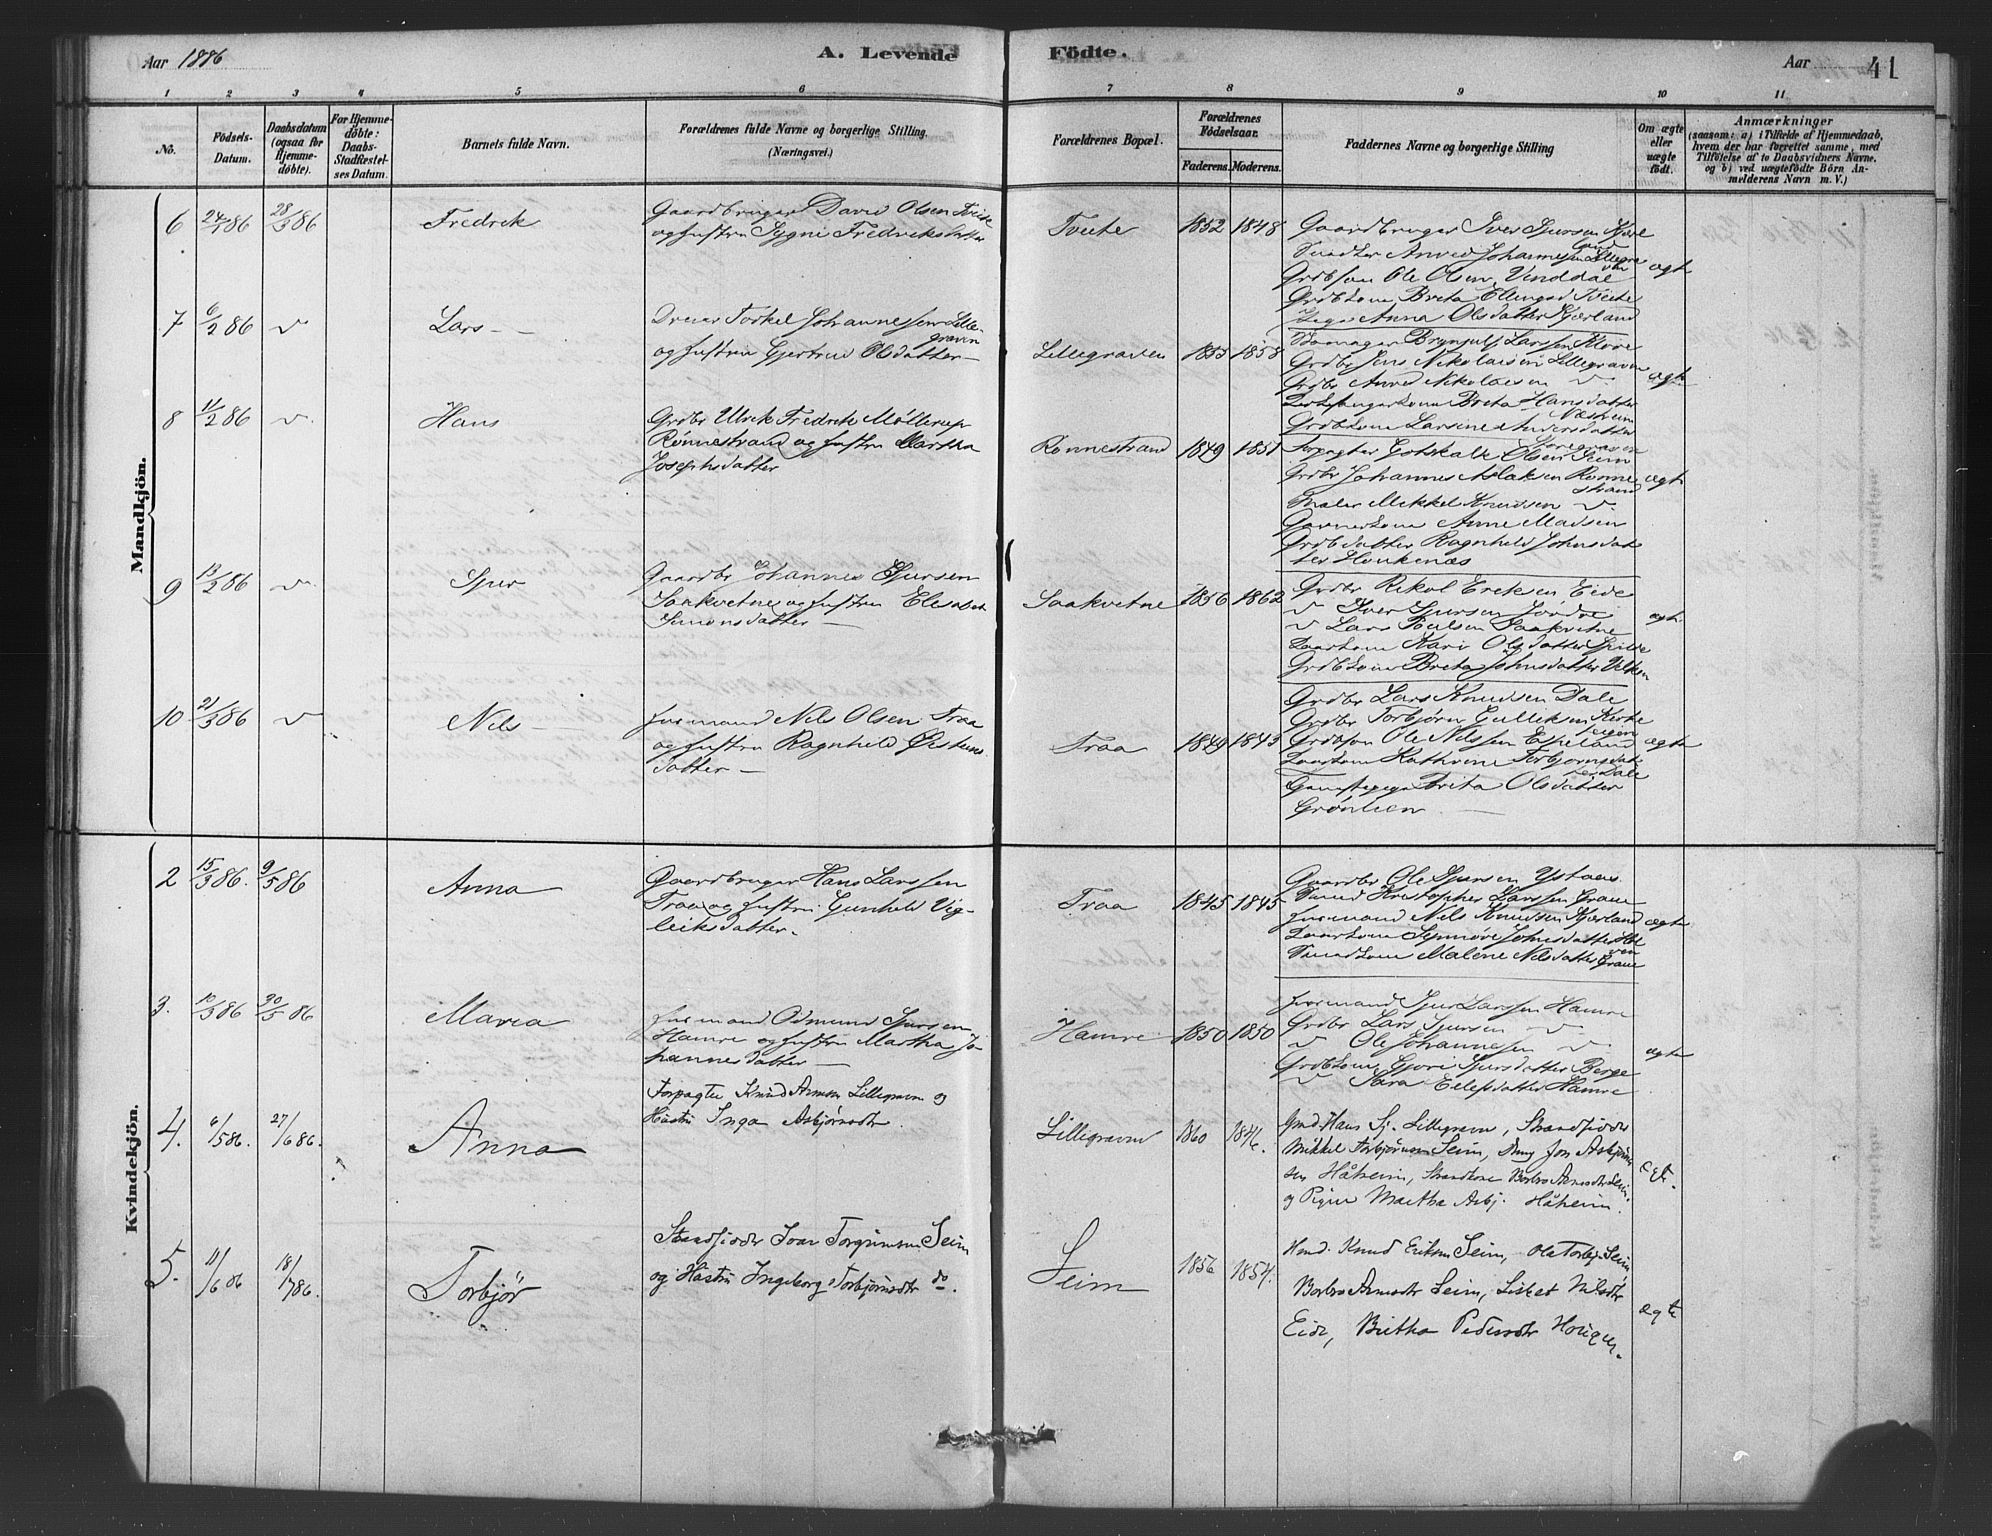 Aar 1886
A. Levende Födte.
Aar 41
1 2 3 4 5 6 7 8 9 10 11
No.
Födsels-Datum.
Daabsdatum (ogsaa for Hjemme-döbte).
For Hjemme-döbte: Daabs-Stadfæstel-ses Datum.
Barnets fulde Navn.
Forældrenes fulde Navne og borgerlige Stilling. (Næringsvei.)
Forældrenes Bopæl.
Forældrenes Födselsaar.
Faderens. Moderens.
Faddernes Navne og borgerlige Stilling
Om ægte eller uægte födt.
Anmærkninger
(saasom: a) i Tilfælde af Hjemmedaab,
hvem der har forrettet samme, med
Tilföielse af to Daabsvidners Navne.
og b) ved uægtefödte Börn An-
melderens Navn m. V.)
Mandkjön.
6 24/1 86 28/3 86 Fredrik
Gaardbruger David Olsen Tveite
og Hustru Sygni Fredriksdatter
Tveite 1852 1848
Gaardbruger Iver Sjursen Kjær
land
Ole Olsen Venddal
Brita Ellingsd Tveite
Anna Olsdatter Kjærland
ægte
7 6/2 86 v Lars
Dreier Torkel Johannessen Lille-
graven
og Hustru Gjertrud Olsdatter
Lillegraven 1853 1858
Brynjulf Larssen
Grdbr Jens Nikolaisen Lillegraven
Grdbr Anved Nikolaisen v
Brita Hansdatter
Larsine Andersdatter
Storegraven
ægte
8 11/2 86 v Hans
Grdbr Ulrik Fredrik Møllerup
Rønnestrand og Hustru Martha
Josephsdatter
Rønnestrand 1849 1851
Forpagter Gotskalk Olsen Seim
Grdbr Johannes Aslaksen Rønne
strand
Maler Mikkel Knudsen v
Anne Madsen
Grdbdatter Ragnhild Johnsdat
ter Haukenæs
ægte
9 13/2 86 v Sjur
Gaardbr Johannes Sjursen
Saakvetne og Hustru Elisabet
Simonsdatter
Saakvetne 1856 1862
Grdbr Rikol Eriksen Eide
v Iver Sjursen
v Lars Poulsen Saakvetne
Kari Olsdatter Spilde
Grdbkone Brita Johnsdatter
ægte
10 21/3 86 v Nils
Husmand Nils Olsen Traa
og Hustru Ragnhild Østens
datter
Traa 1849 1843
Grdbr Lars Knudsen Dale
Grdbr Torbjørn Gulliksen Kirke
eigen
Grdbson Ole Nilssen Espeland
Kathrine Torbjørnsdat
ter Dale
Brita Olsdatter
Grønlien
ægte
Kvindekjön.
2 15/3 86. 9/5 86 Anna
Gaardbruger Hans Larssen
Traa og Hustru Gunhild Vig-
leiksdatter.
Traa 1845 1845
Gaardbr Ole Sjursen Ystaas
Kristopher Larssen Graue
Husmand Nils Knudsen Kjærland
Synnøve Johnsdatter
Malene Nilsdatter Graue
ægte
3. 10/3 86 30/5 86 Maria
Husmand Odmund Sjursen
Hamre og Hustru Martha Jo-
hannesdatter
Hamre 1850 1850
Husmand Sjur Larssen Hamre
Grdbr Lars Sjursen v
v Ole Johannessen v
Grdbkone Gjøri Sjursdatter Berge
v Sara Eilefsdatter Hamre
ægte
4. 6/5 86. 27/6 86. Anna
Forpagter Knud Arneson Lillegraven og
Hustru Inga Asbjørnsdtr.
Lillegraven 1860 1846.
Hans Sj. Lillegraven, Strandsidder
Mikkel Torbjørnsen Seim, Ung. Jon Asbjørn
sen Håheim, Strandkone Borbro Arnesdtr Seim.
og Pigen Martha Asbj. Håheim.
ægt.
5. 11/6 86 18/7 86. Torbjør
Strandsidder Ivar Torgrimsen Seim
og Hustru Ingeborg Torbjørnsdtr do.
Seim 1856 1854.
Knud Eriksen Seim, Ole Torbj. Seim
Borbro Arnesdtr Seim, Lisbet Nilsdtr
Eide, Britha Pedersdtr
ægte